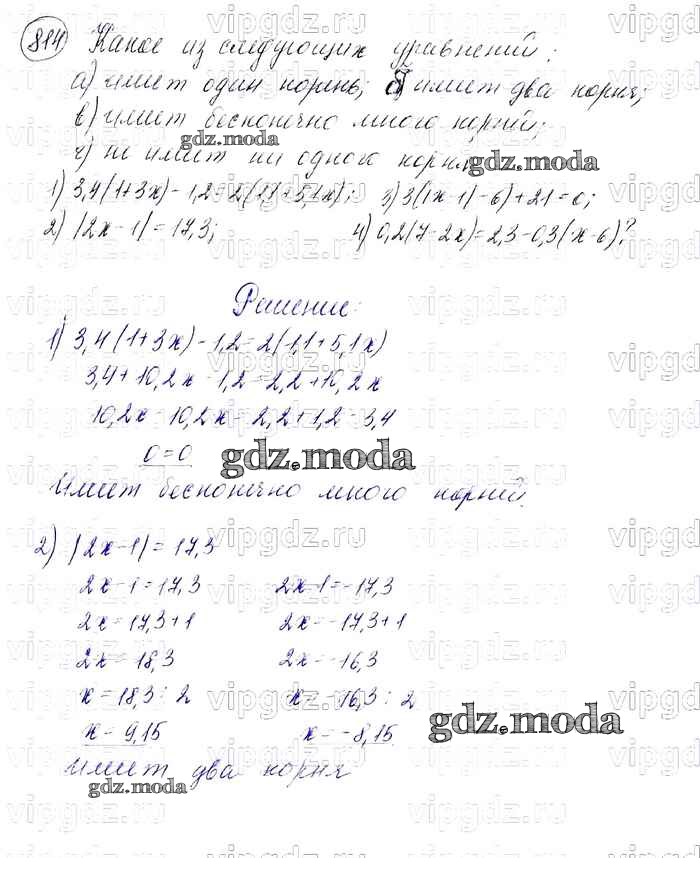 814 Какое из следующих уравнений:
а) имеет один корень; б) имеет два корня;
в) имеет бесконечно много корней;
г) не имеет ни одного корня
1) 3,4(1+3x)-1,2=2(1,1+5,1x); 3) 3(|x-1|-6)+21=0;
2) |2x-1|=17,3; 4) 0,2(7-2x)=2,3-0,3(x-6)?
Решение:
1) 3,4(1+3x)-1,2=2(1,1+5,1x)
3,4+10,2x-1,2=2,2+10,2x
10,2x-10,2x=2,2+1,2-3,4
0=0
Имеет бесконечно много корней.
2) |2x-1|=17,3
2x-1=17,3 2x-1=-17,3
2x=17,3+1 2x=-17,3+1
2x=18,3 2x=-16,3
x=18,3:2 x=-16,3:2
x=9,15 x=-8,15
Имеет два корня
gdz.moda
gdz.moda
gdz.moda
gdz.moda
gdz.moda
vipgdz.ru